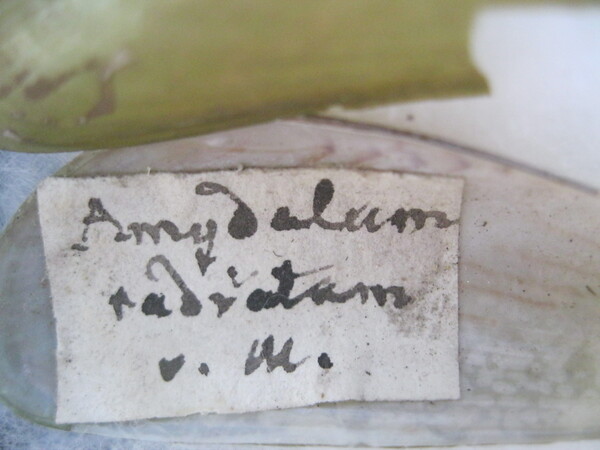 Amydalum
radiatum
v. M.